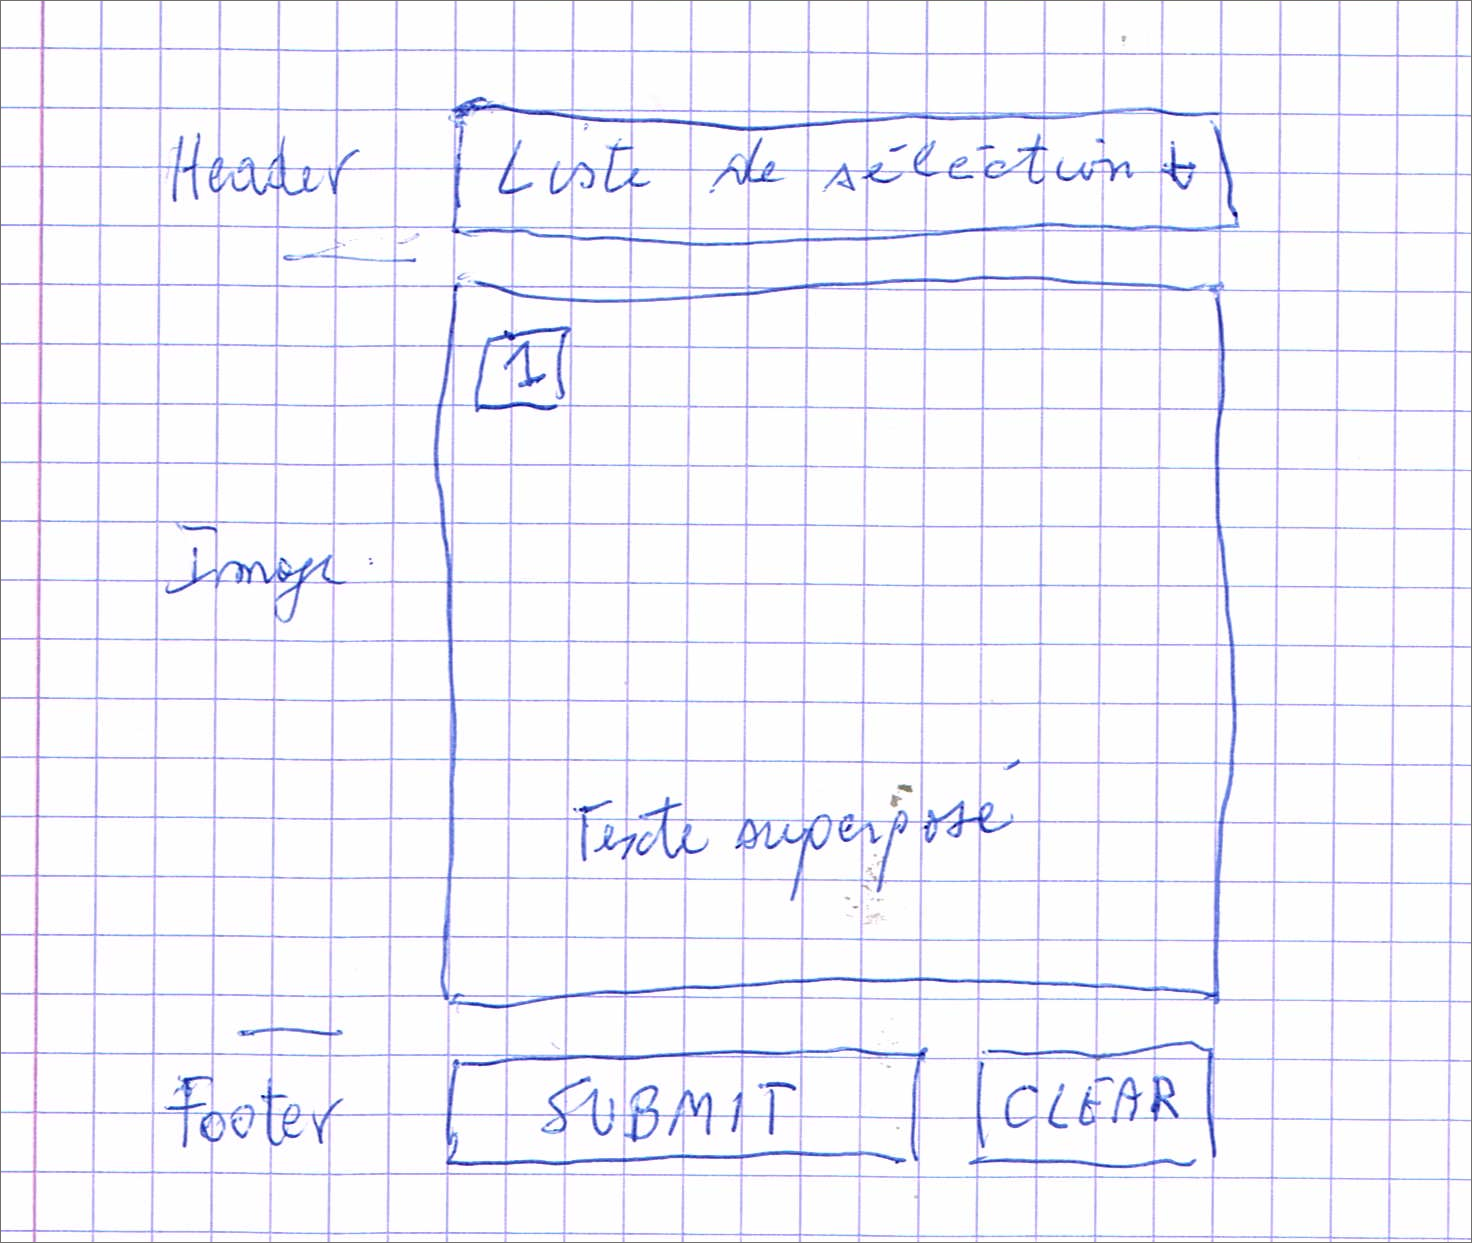 Header
Liste de sélection ↓
1
Image
Texte superposé
Footer
SUBMIT
CLEAR